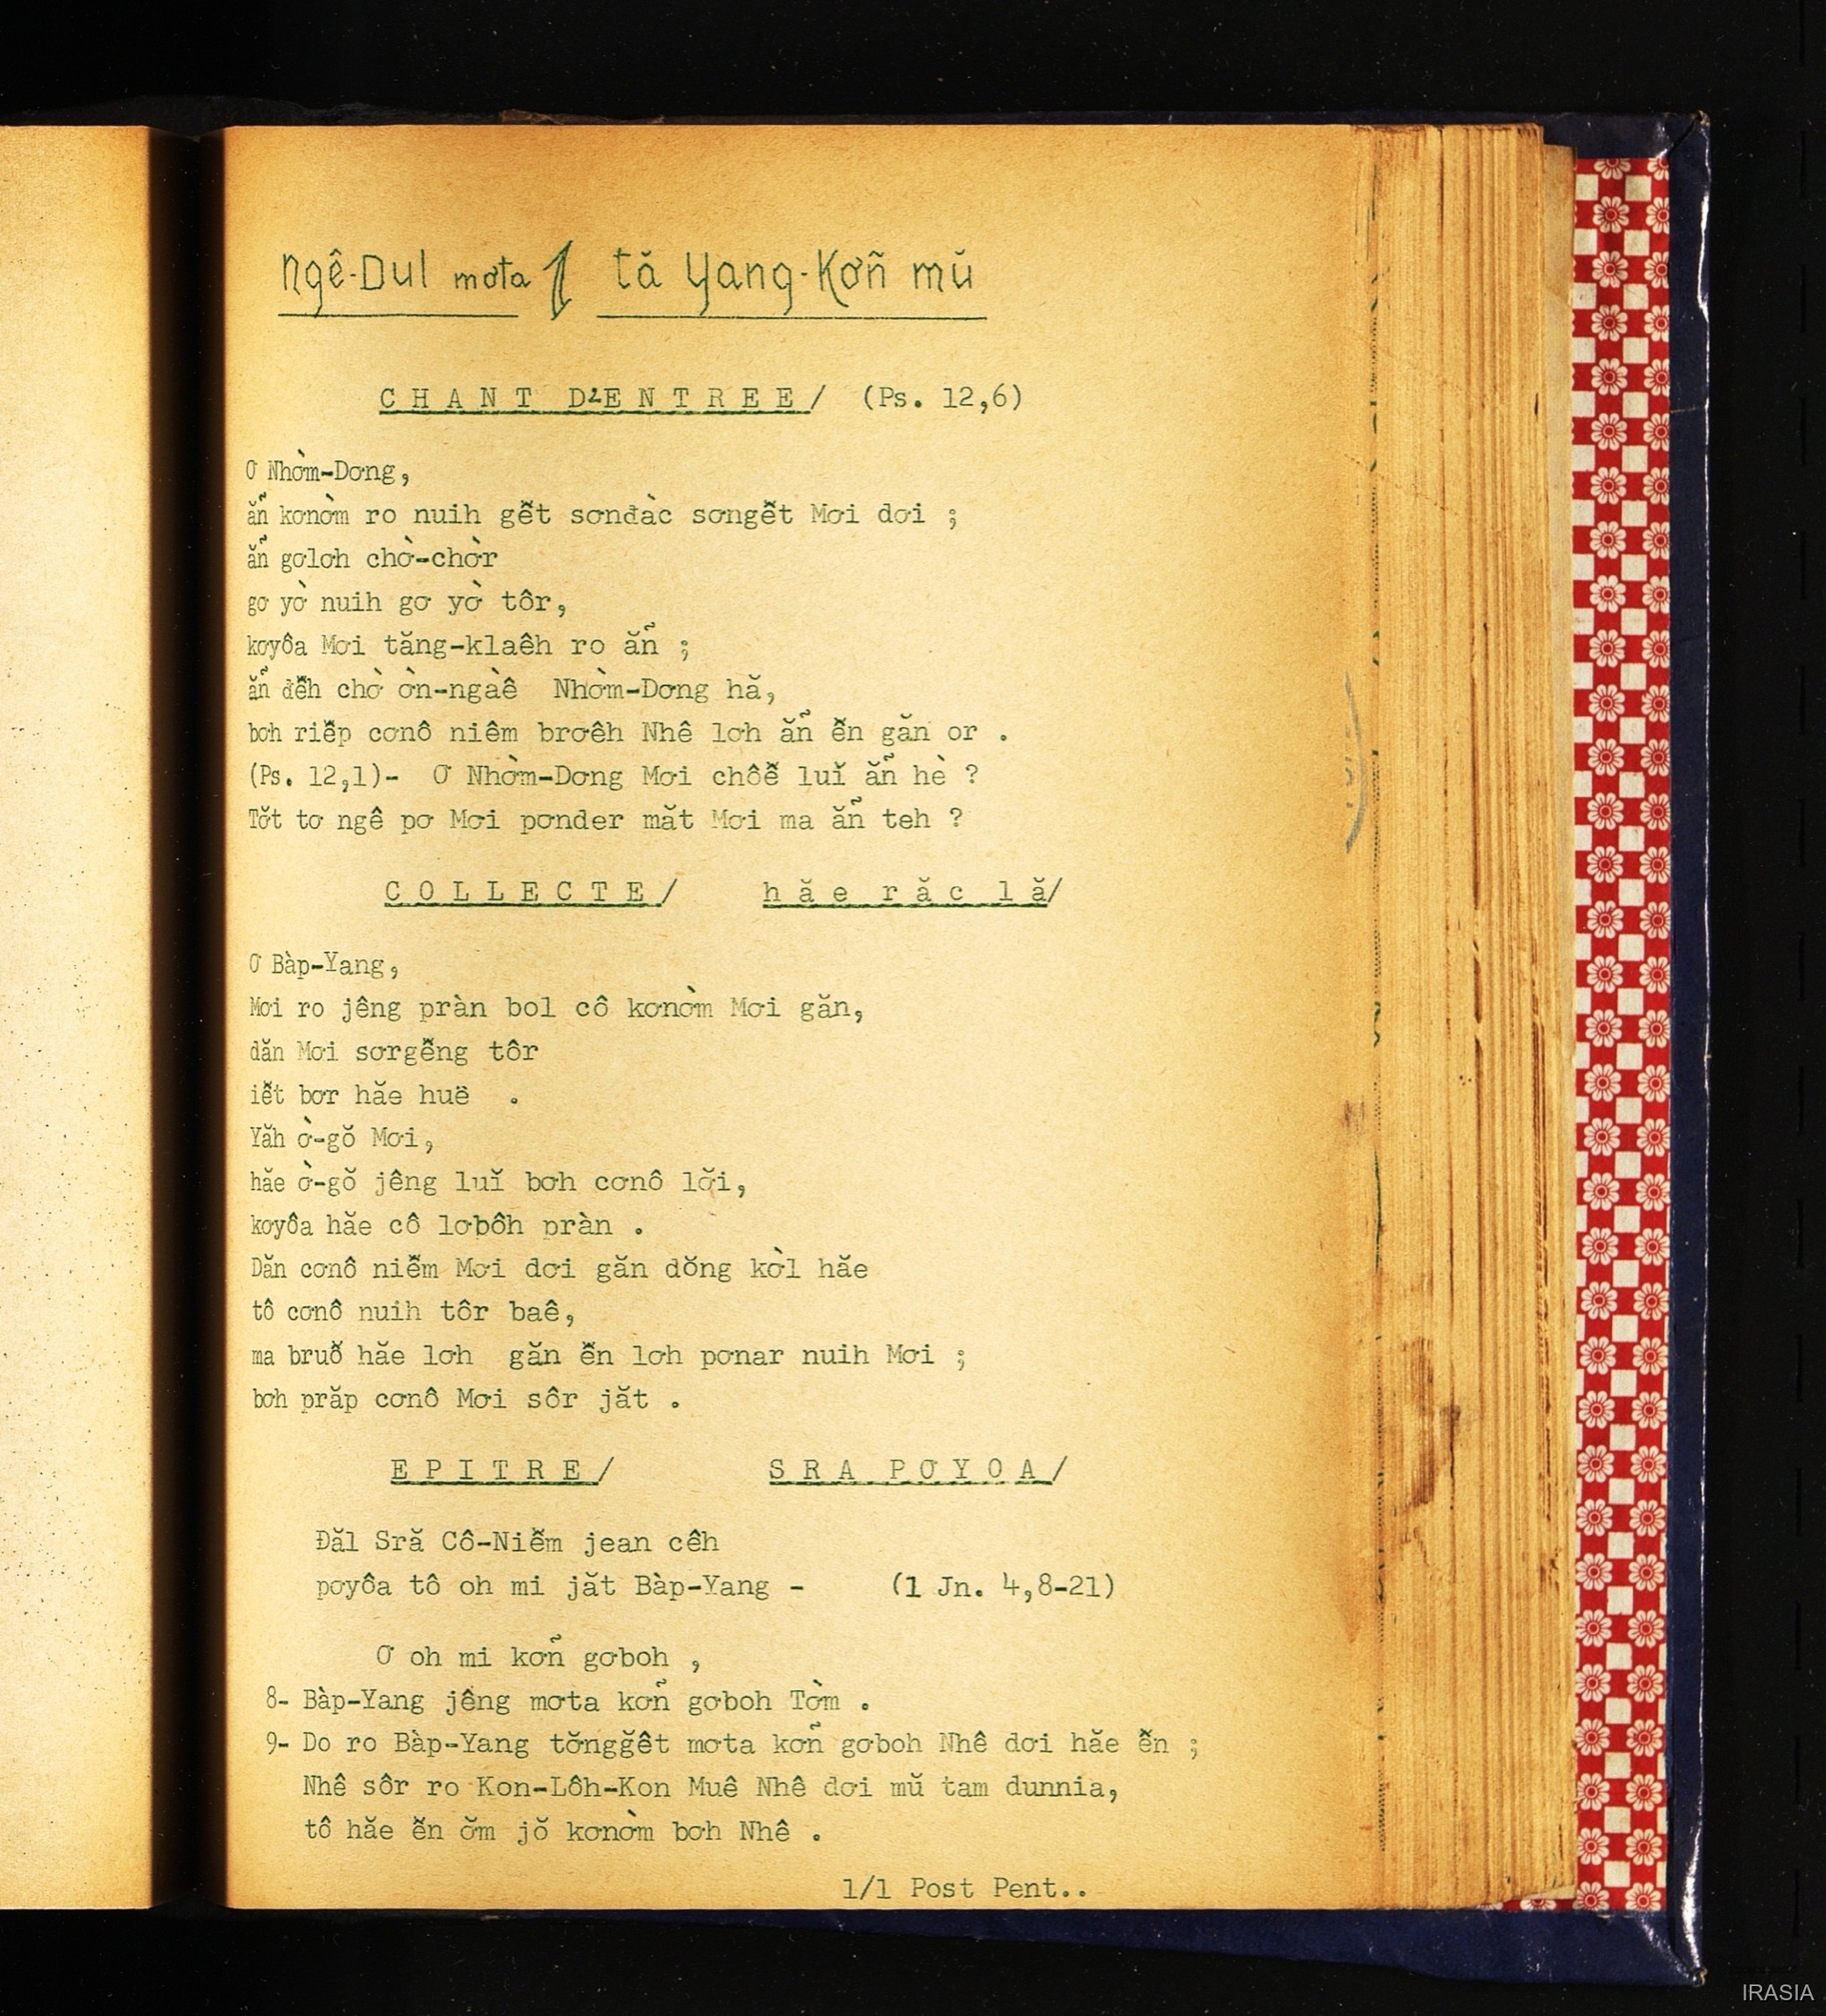 Ngê-Dul mơta 1 tă Yang-Kơñ mŭ
CHANT D'ENTREE/ (Ps. 12,6)
Ơ Nhờm-Dơng,
ăñ kơnờm ro nuih gễt sơnđàc sơngễt Mơi dơi ;
ăñ gơlơh chờ-chờr
gơ yờ nuih gơ yờ tôr,
kơyôa Mơi tăng-klaêh ro ăñ ;
ăñ đễh chờ ờn-ngàê Nhờm-Dơng hă,
bơh riễp cơnô niêm brơêh Nhê lơh ăñ ễn găn or .
(Ps. 12,1)- Ơ Nhờm-Dơng Mơi chôễ luĭ ăñ hè ?
Tơ̆t tơ ngê pơ Mơi pơnder măt Mơi ma ăñ teh ?
COLLECTE/ hăe răc lă/
Ơ Bàp-Yang,
Mơi ro jêng pràn bol cô kơnờm Mơi găn,
dăn Mơi sơrgễng tôr
iễt bơr hăe huë .
Yăh ờ-gơ̆ Mơi,
hăe ờ-gơ̆ jêng luĭ bơh cơnô lơ̆i,
kơyôa hăe cô lơbôh pràn .
Dăn cơnô niễm Mơi dơi găn dŏng kờl hăe
tô cơnô nuih tôr baê,
ma bruơ̆ hăe lơh găn ễn lơh pơnar nuih Mơi ;
bơh prăp cơnô Mơi sôr jăt .
EPITRE/ SRA PƠYOA/
Đăl Sră Cô-Niễm jean cêh
pơyôa tô oh mi jăt Bàp-Yang - (1 Jn. 4,8-21)
Ơ oh mi kơñ gơboh ,
8- Bàp-Yang jêng mơta kơñ gơboh Tờm .
9- Do ro Bàp-Yang tơ̆ngğêt mơta kơñ gơboh Nhê dơi hăe ễn ;
Nhê sôr ro Kon-Lôh-Kon Muê Nhê dơi mŭ tam dunnia,
tô hăe ễn ơ̆m jŏ kơnờm bơh Nhê .
1/1 Post Pent..
IRASIA